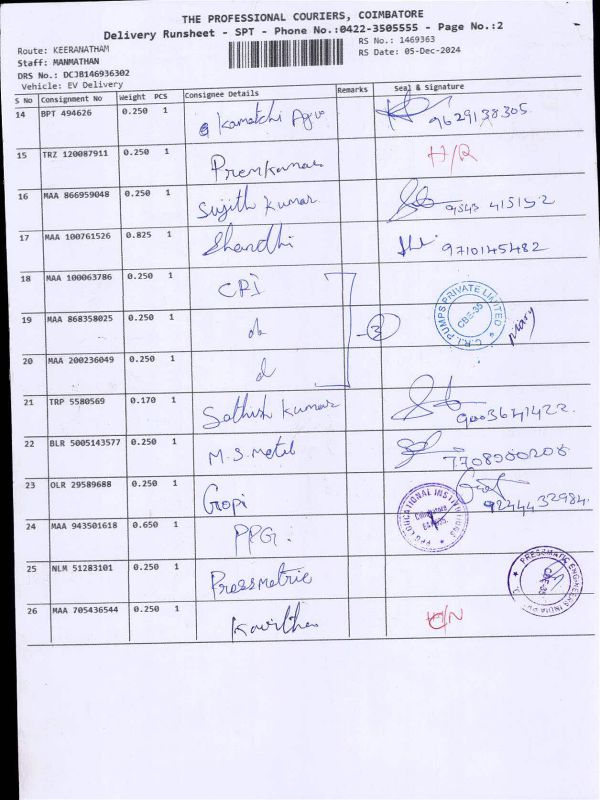 THE PROFESSIONAL COURIERS, COIMBATORE
Delivery Runsheet - SPT - Phone No.:0422-3505555 - Page No.:2
Route: KEERANATHAM
RS No.: 1469363
Staff: MANMATHAN
RS Date: 05-Dec-2024
DRS No.: DCJB146936302
Vehicle: EV Delivery
S No Consignment No Weight PCS Consignee Details Remarks Seal & Signature
14 BPT 494626 0.250 1 Kamatchi Agro 9629138305
15 TRZ 120087911 0.250 1 Premkumar H/R
16 MAA 866959048 0.250 1 Sujith Kumar 9543 415152
17 MAA 100761526 0.825 1 Shandhi 9710145482
18 MAA 100063786 0.250 1 CRI
19 MAA 868358025 0.250 1 do 3 C.R.I. PUMPS PRIVATE LIMITED CBE-35
20 MAA 200236049 0.250 1 d
21 TRP 5580569 0.170 1 Sathish Kumar 9003641422
22 BLR 5005143577 0.250 1 M.S. Metal 7708900208
23 OLR 29589688 0.250 1 Gopi 9244432984
24 MAA 943501618 0.650 1 PPG. PPG EDUCATIONAL INSTITUTIONS Coimbatore
25 NLM 51283101 0.250 1 Pressmetric PRESSMATIC ENGINEERS INDIA CBE-35
26 MAA 705436544 0.250 1 Kavitha